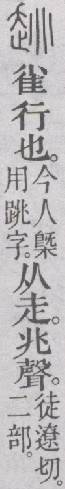 𧺣雀行也。今人槩用跳字。从走。兆聲。徒遼切。二部。